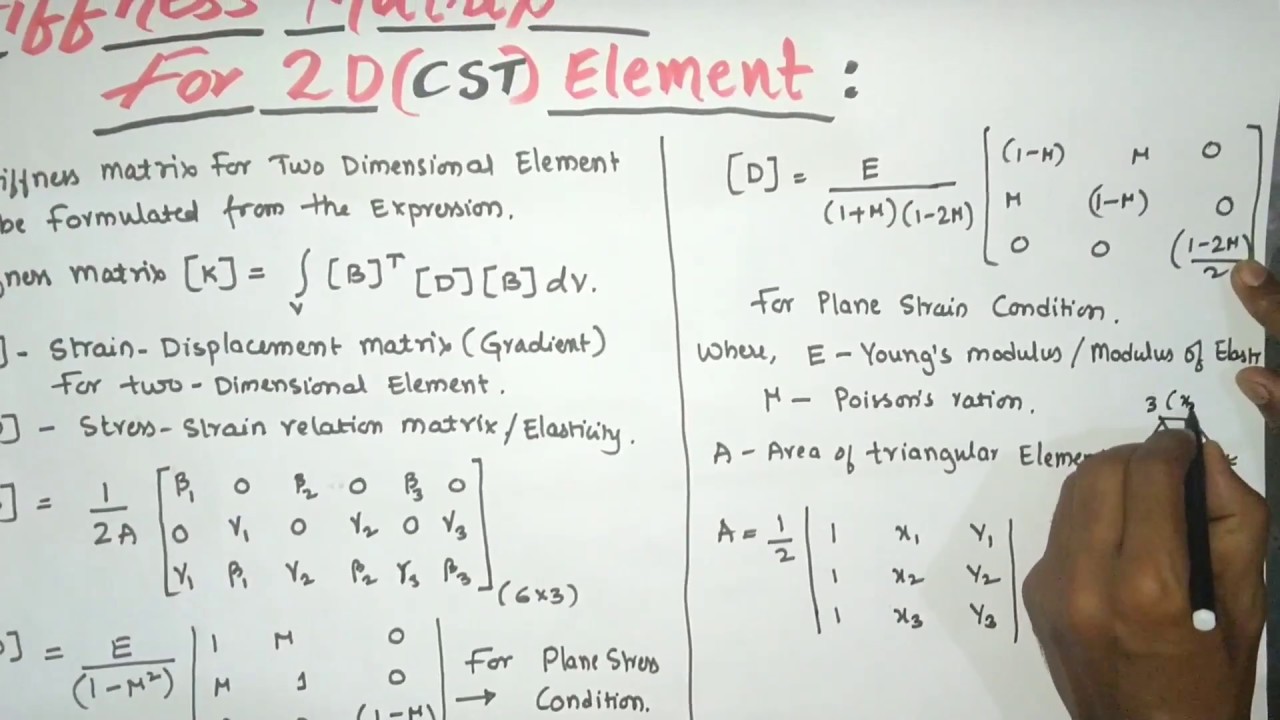 iffness Matrix
For 2D (CST) Element :
iffness matrix For Two Dimensional Element
be formulated from the Expression.
ness matrix [K] = ∫ᵥ [B]ᵀ [D] [B] dv.
] - Strain-Displacement matrix (Gradient)
For two-Dimensional Element.
] - Stress-Strain relation matrix/Elasticity.
] = 1/2A [ β₁ 0 β₂ 0 β₃ 0
0 γ₁ 0 γ₂ 0 γ₃
γ₁ β₁ γ₂ β₂ γ₃ β₃ ] (6×3)
] = E/(1-μ²) | 1 μ 0 |
μ 1 0
(1-μ)
For Plane Stress
→ Condition.
[D] = E/(1+μ)(1-2μ) [ (1-μ) μ 0
μ (1-μ) 0
0 0 (1-2μ)/2 ]
For Plane Strain Condition.
Where, E - Young's modulus / Modulus of Elast
μ - Poisson's ration.
3 (x₃
A - Area of triangular Eleme
A = 1/2 | 1 x₁ y₁ |
1 x₂ y₂
1 x₃ y₃